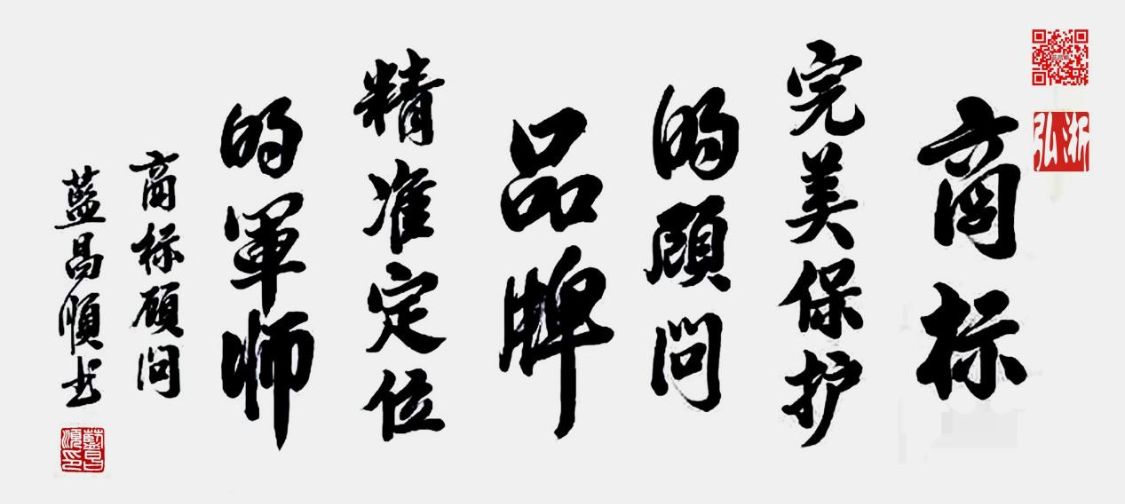 商标
完美保护
的顾问
品牌
精准定位
的軍师
商标顾问
藍昌順书
浙弘